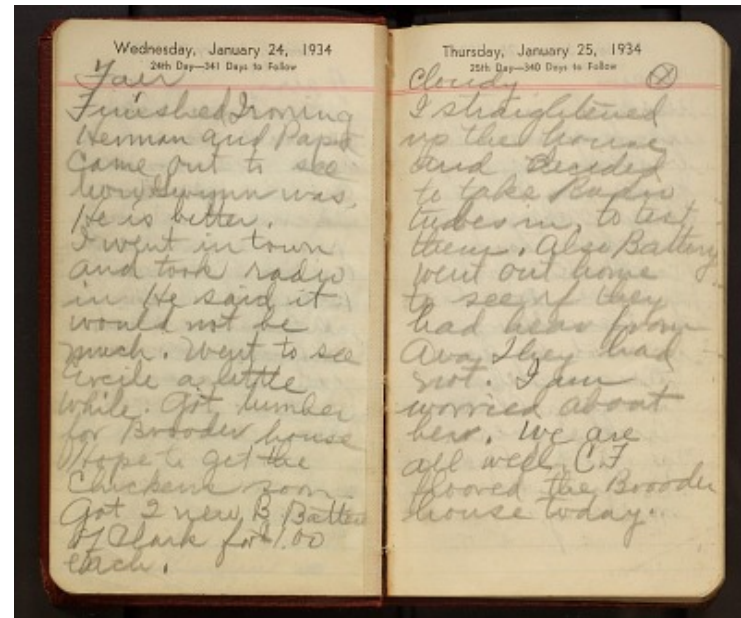 Wednesday, January 24, 1934
24th Day—341 Days to Follow
Fair
Finished Ironing
Herman and Papa
Came out to see
how Gwynn was.
He is better.
I went in town
and took radio
in He said it
would not be
much. Went to see
Lucile a little
while. Got lumber
for Brooder house
Hope to get the
Chickens soon
Got 2 new B Batters
of Clark for $1.00
each.
Thursday, January 25, 1934
25th Day—340 Days to Follow
Cloudy
I straightened
up the house
and Decided
to take Radio
tubes in, to test
them. Also Battery
went out home
to see if they
had hear from
Ava They had
not. I am
worried about
her. We are
all well. C.F
floored the Brooder
house today.